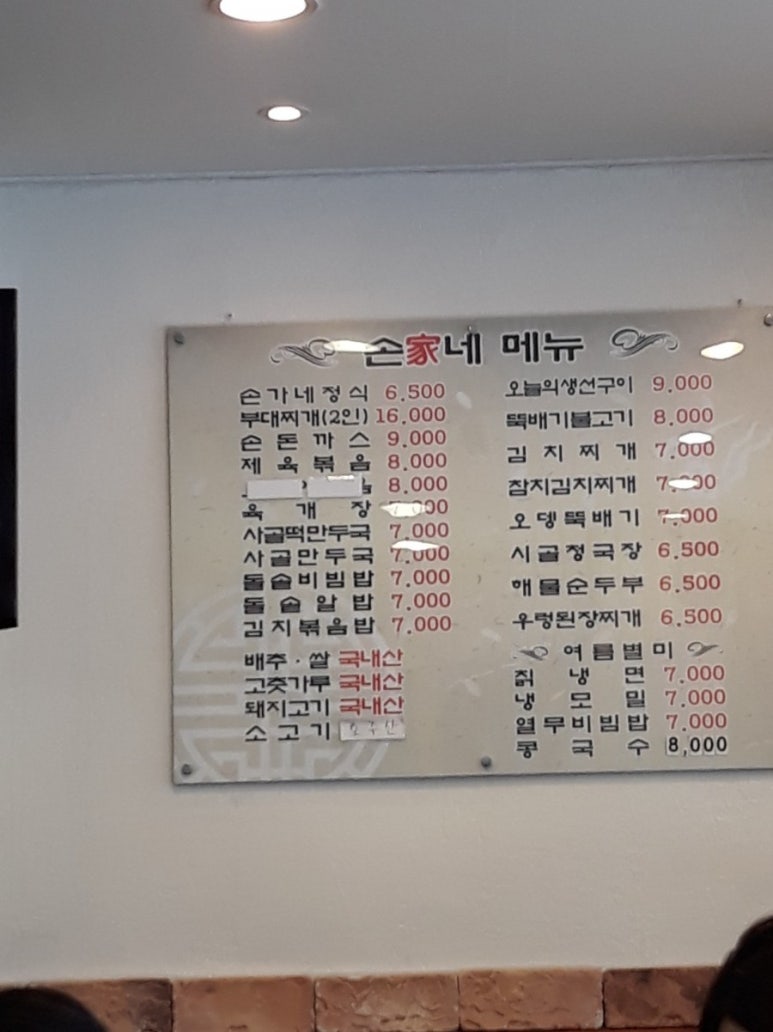 손家네 메뉴
손가네정식 6.500
부대찌개(2인) 16.000
손돈까스 9.000
제육볶음 8.000
8.000
육개장 7.000
사골떡만두국 7.000
사골만두국 7.000
돌솥비빔밥 7.000
돌솥알밥 7.000
김치볶음밥 7.000
배추·쌀 국내산
고춧가루 국내산
돼지고기 국내산
소고기
오늘의생선구이 9.000
뚝배기불고기 8.000
김치찌개 7.000
참치김치찌개 7.000
오뎅뚝배기 7.000
시골청국장 6.500
해물순두부 6.500
우렁된장찌개 6.500
여름별미
칡냉면 7.000
냉모밀 7.000
열무비빔밥 7.000
콩국수 8,000